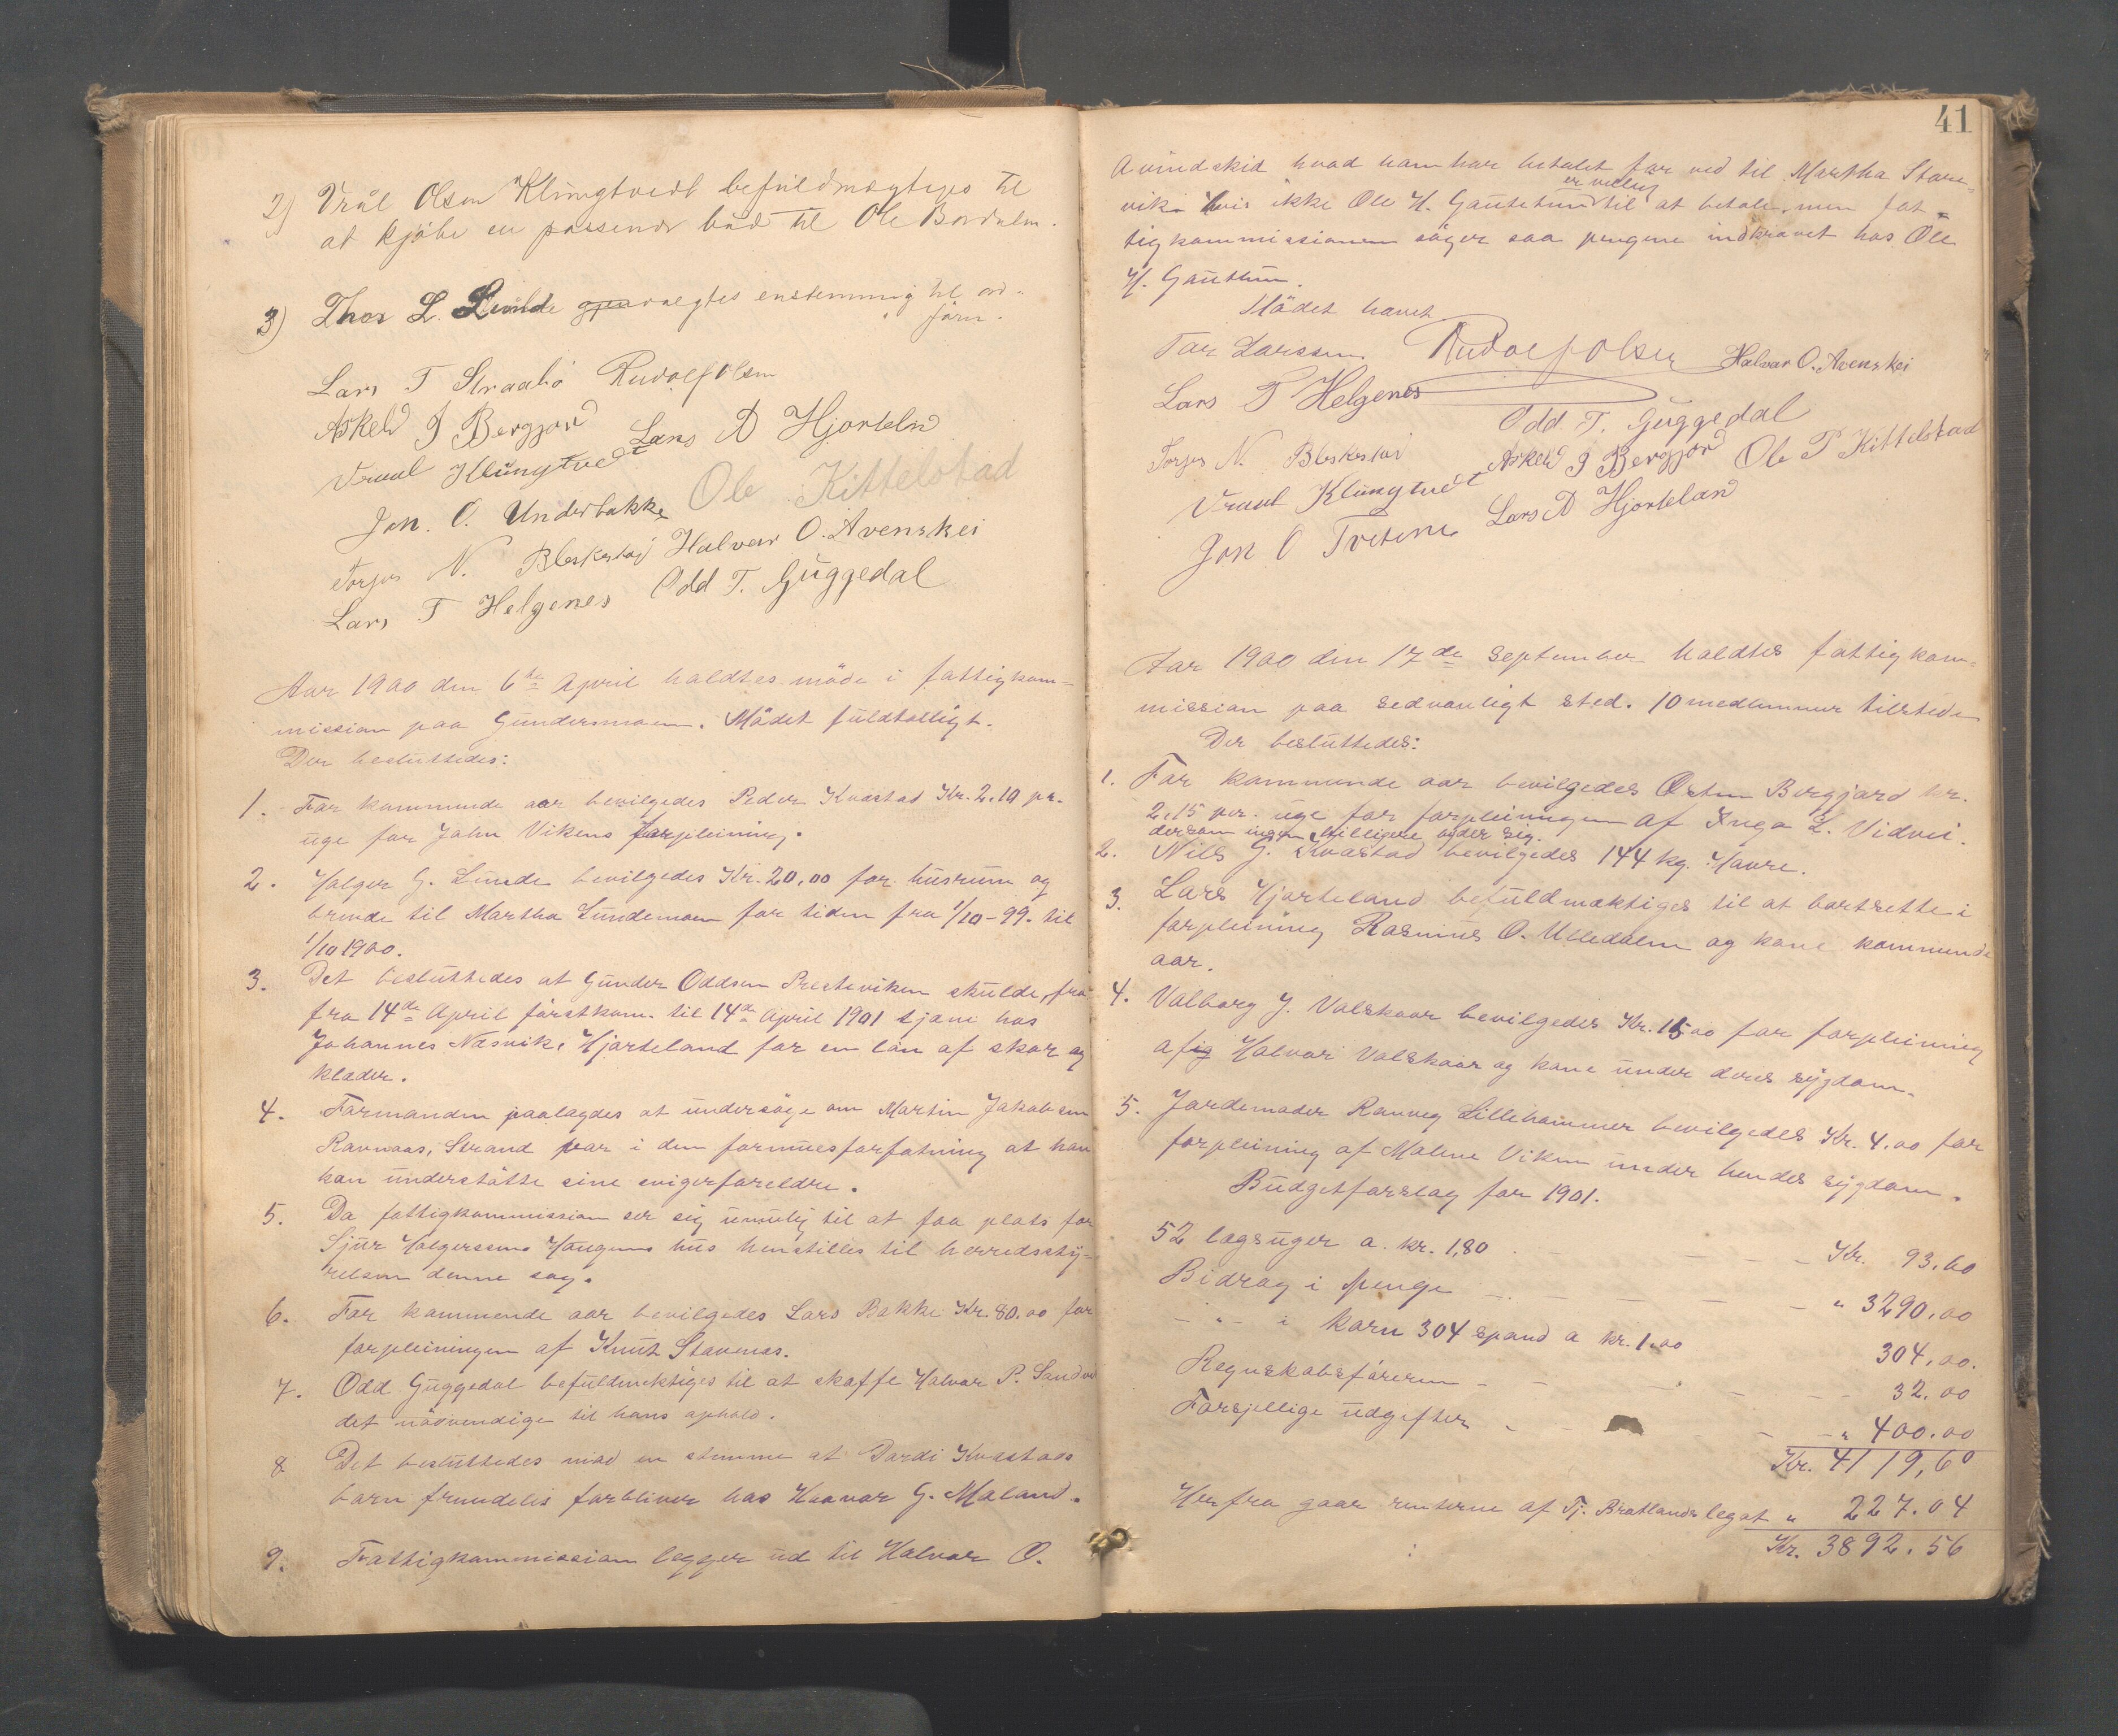 2) Vrål Olsen Klungtvedt befuldmægtiges til
at kjøbe en passende baad til Ole Bordalm.
3) Thor L. Lunde gjen valgtes enstemmig til ord-
förer.
Lars T Straabø Rudolf Olsen
Askeld J Bergjord Lars A Hjorteland
Vraal Klungtvedt
Jon. O. Underbakke Ole Kittelstad
Torjus N. Bleskestad Halvar O. Avenskei
Lars T Helgenes Odd T. Guggedal
Aar 1900 den 6te April holdtes möde i fattigkom-
mission paa Gundersmoen. Mödet fuldtalligt.
Der besluttedes:
1. For kommende aar bevilgedes Peder Kvæstad Kr. 2.10 pr.
uge for John Vikens forpleining.
2. Holger G. Lunde bevilgedes Kr. 20,00 for husrum og
brende til Martha Lundemoen for tiden fra 1/10-99. til
1/10 1900.
3. Det besluttedes at Gunder Oddsen Presteviken skulde, fra
fra 14de April förstkom. til 14de April 1901 tjene hos
Johannes Næsvik, Hjorteland for en lön af skor og
klæder.
4. Formanden paalagdes at undersöge om Martin Jakobsen
Ravnaas, Strand var i den formuesforfatning at han
kan understötte sine svigerforeldre.
5. Da fattigkommission ser sig umulig til at faa plads for
Sjur Holgersens Haugens hus henstilles til herredssty-
relsen denne sag.
6. For kommende aar bevilgedes Lars Bakke Kr. 80.00 for
forpleiningen af Knut Stavenes.
7. Odd Guggedal befuldmektiges til at skaffe Halvor P. Sandvi
det nödvendige til hans ophold.
8 Det besluttedes med en stemme at Dardi Kvæstads
barn fremdeles forbliver hos Haavar G. Maland.
9. Fattigkommission legger ud til Halvor O.
41
Avindskid hvad ham har betalet for ved til Martha Store-
er villig
vik. hvis ikke Ole H. Gautetun til at betale, men fat-
tigkommissionen söger saa pengene indkrævet hos Ole
H. Gautun.
Mödet hævet
Tor Larssen Rudolf Olsen Halvar O. Avenskei
Lars T Helgenes
Odd T. Guggedal
Torjus N. Bleskestad Askeld J Bergjord Ole P Kittelstad
Vraal Klungtvedt
Jon O Tveteme Lars A Hjorteland
Aar 1900 den 17de September holdtes fattigkom-
mission paa sedvanligt sted. 10 medlemmer tilstede
Der besluttedes:
1. For kommende aar bevilgedes Østen Bergjord kr.
2,15 per. uge for forpleiningen af Inga L. Vidvei.
dersom ingen billigere byder sig.
2. Nils G. Kvæstad bevilgedes 144 kg. Havre.
3. Lars Hjorteland befuldmæktiges til at bortsette i
forpleining Rasmus O. Ulledalen og kone kommende
aar.
4. Valborg J. Valskaar bevilgedes Kr. 15.00 for forpleining
af ig Halvor Valskaar og kone under deres sygdom.
5. Jordemoder Ranveg Lillehammer bevilgedes Kr. 4.00 for
forpleining af Malene Viken under hendes sygdom.
Budgetforslag for 1901.
52 lægsuger a. kr. 1,80 - - - Kr. 93.60
Bidrag i penge - - - - - " 3290.00
- " - i korn 304 spand a kr. 1.00 304.00.
Regnskabsföreren - - - - - - 32.00
Forsjellige udgifter - - - - " 400.00
Kr. 4119,60
Herfra gaar renterne af Tj. Bratlands legat " 227.04
Kr. 3892.56